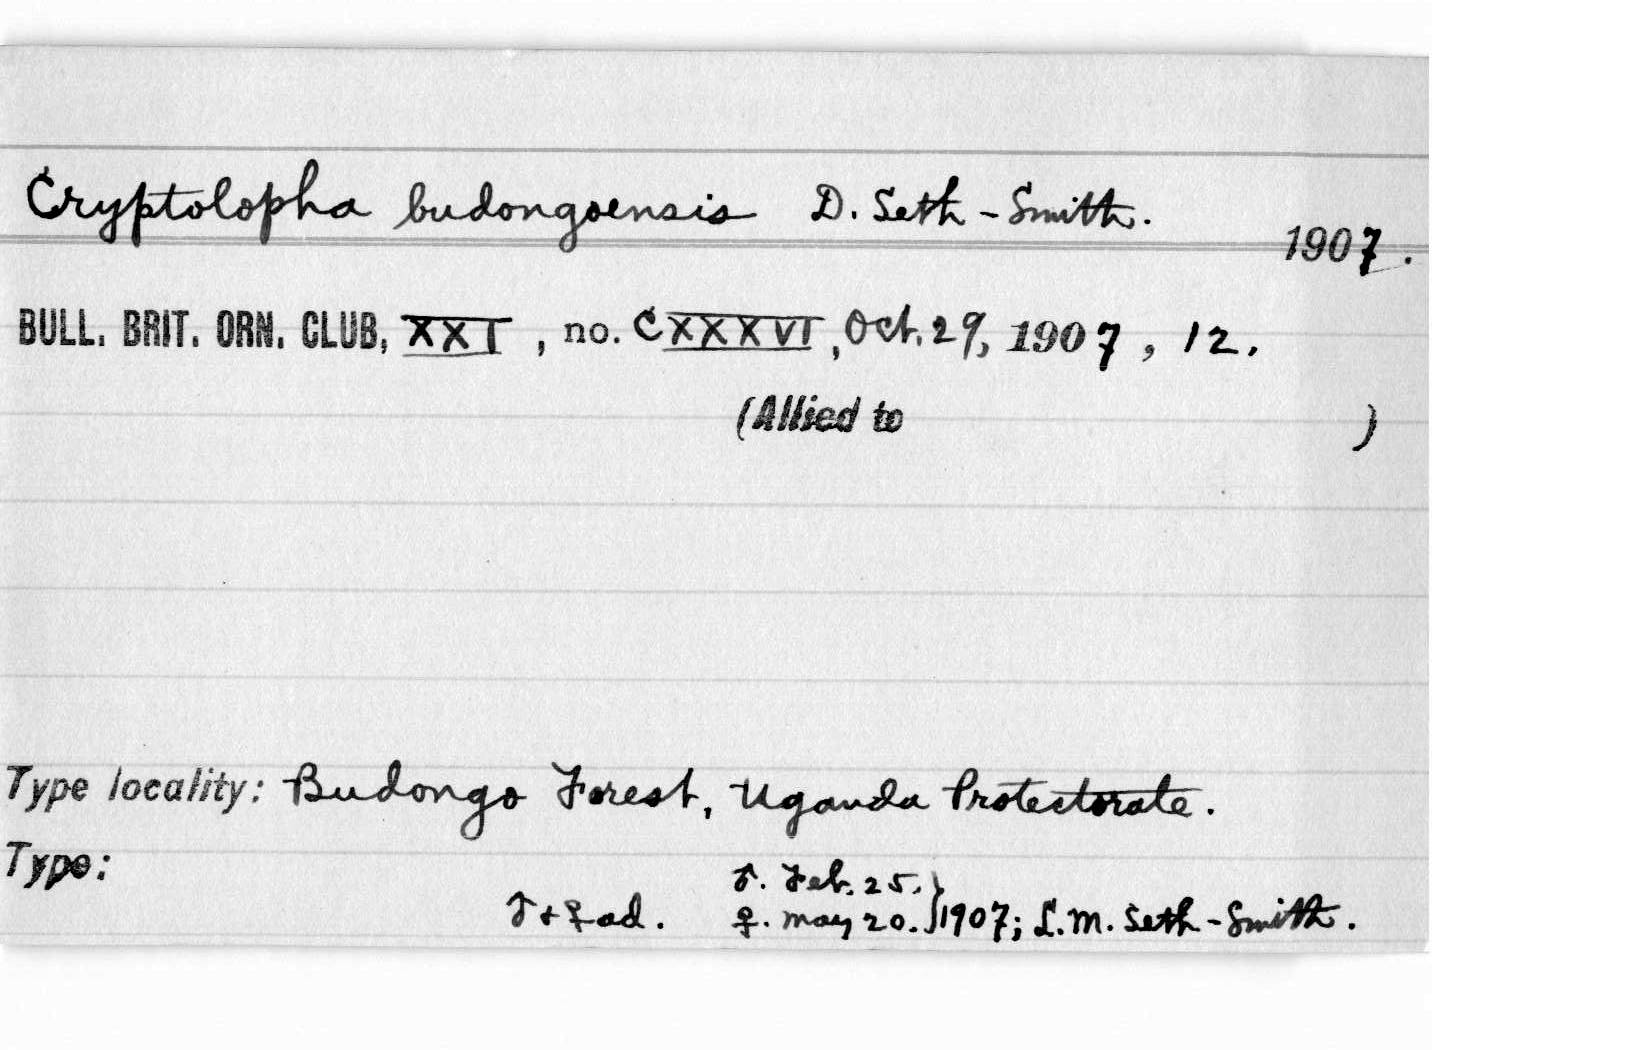 Cryptolopha budongoensis D. Seth-Smith.
1907.
BULL. BRIT. ORN. CLUB, XXI, no. CXXXVI, Oct. 29, 1907, 12.
(Allied to )
Type locality: Budongo Forest, Uganda Protectorate.
Type:
♂. Feb. 25.
♂ + ♀ ad. ♀. May 20. } 1907; L. M. Seth-Smith.